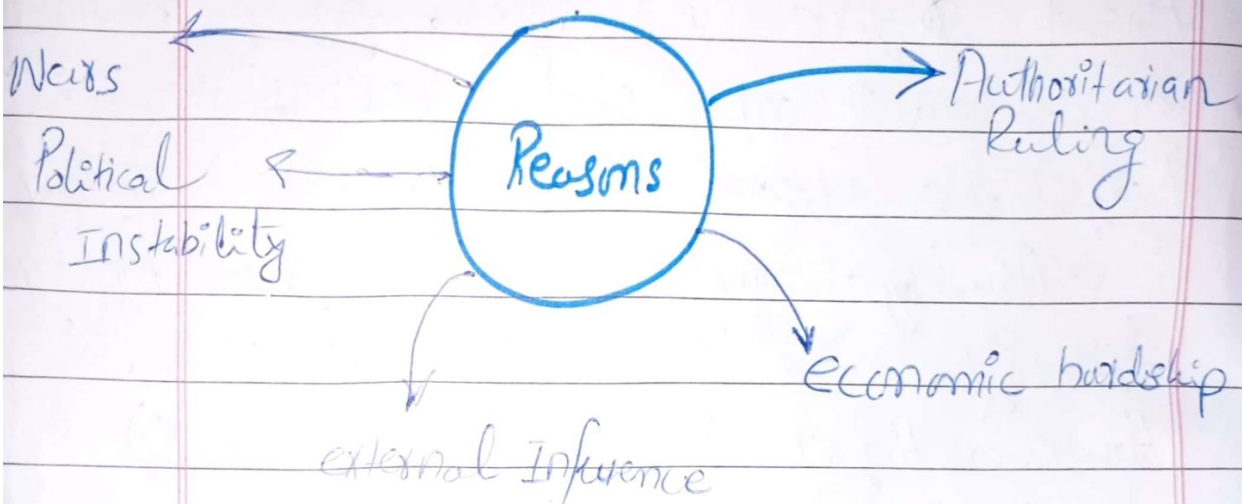 Wars
Political
Instability
Reasons
Authoritarian
Ruling
economic hardship
external Infurence